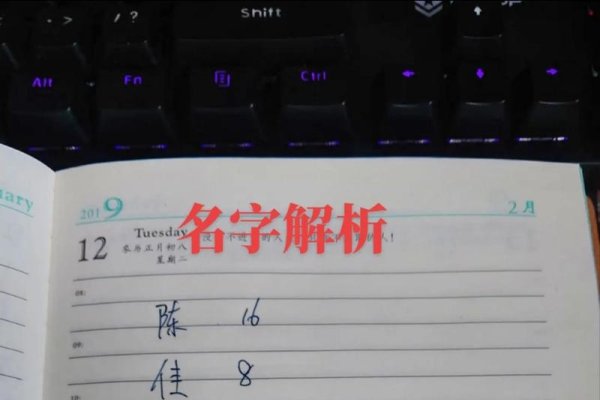 > / ? Shift
Alt Fn Ctrl
2019 2月
名字解析
12 Tuesday
农历正月初八
星期二
08:
陈 16
09:
佳 8
10: